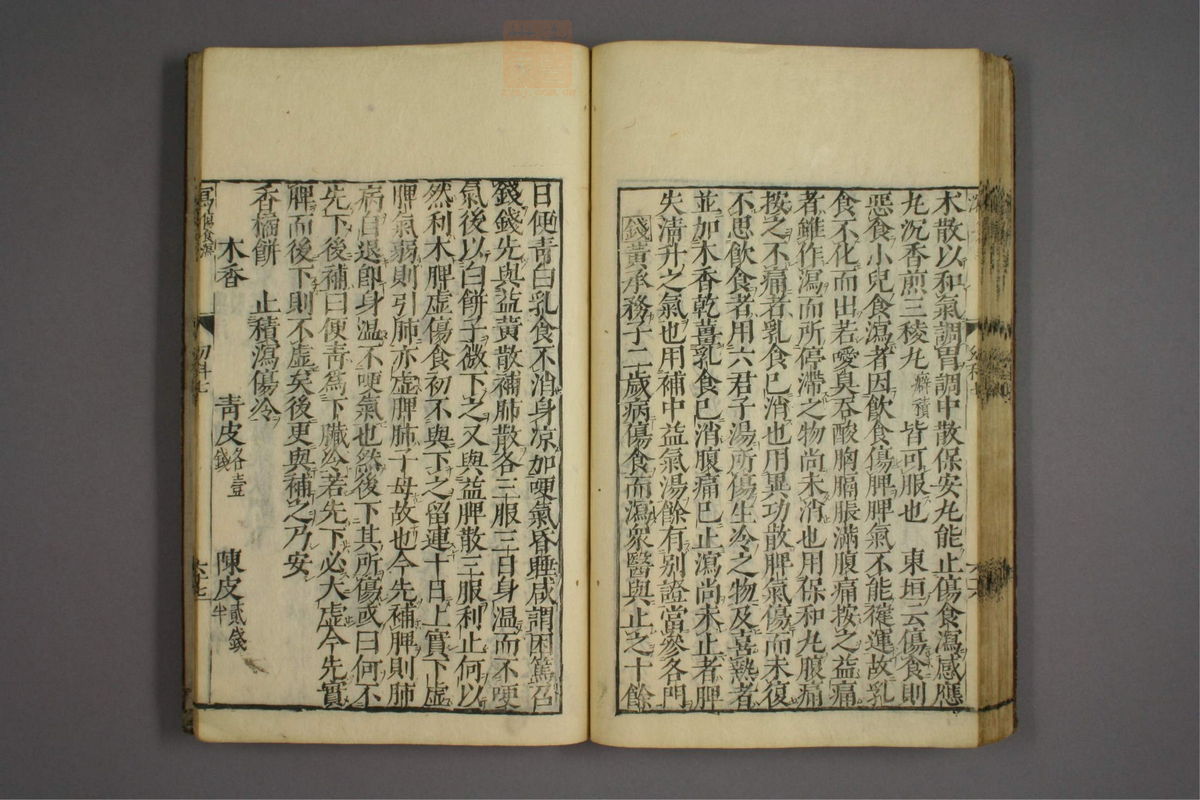 木散以和氣調胃調中散保安丸能止傷食瀉感應
丸沉香煎三稜丸癖積皆可服也　東垣云傷食則
惡食小兒食瀉者因飲食傷脾脾氣不能健運故乳
食不化而出若噯臭吞酸胸膈脹滿腹痛按之益痛
者雖作瀉而所停滯之物尚未消也用保和丸腹痛
按之不痛者乳食已消也用異功散脾氣傷而未復
不思飲食者用六君子湯所傷生冷之物及喜熱者
並加木香乾薑乳食已消腹痛已止瀉尚未止者脾
失清升之氣也用補中益氣湯餘有別證當參各門
錢黃承務子二歲病傷食而瀉衆醫與止之十餘
日便青白乳食不消身凉加哽氣昏睡咸謂困篤召
錢錢先與益黃散補肺散各三服三日身溫而不哽
氣後以白餅子微下之又與益脾散三服利止何以
然利木脾虛傷食初不與下之留連十日上實下虛
脾氣弱則引肺亦虛脾肺子母故也今先補脾則肺
病自退即身溫不哽氣也然後下其所傷或曰何不
先下後補曰便青爲下臟冷若先下必大虛今先實
脾而後下則不虛矣後更與補之乃安
香橘餅　止積瀉傷冷
木香　青皮各壹錢　陳皮貳錢半